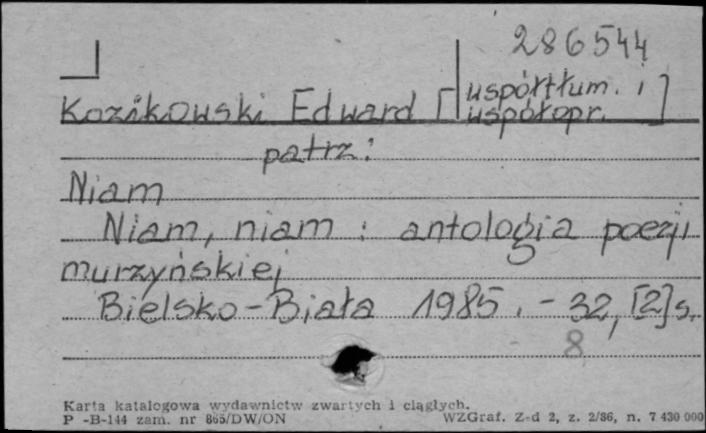 286544
Kozikowski Edward [współtłum. i
współopr.]
patrz:
Niam
Niam, niam : antologia poezji
murzyńskiej
Bielsko-Biała 1985. - 32, [2] s.
8
Karta katalogowa wydawnictw zwartych i ciągłych.
P -B-144 zam. nr 865/DW/ON WZGraf. Z-d 2, z. 2/86, n. 7 430 000